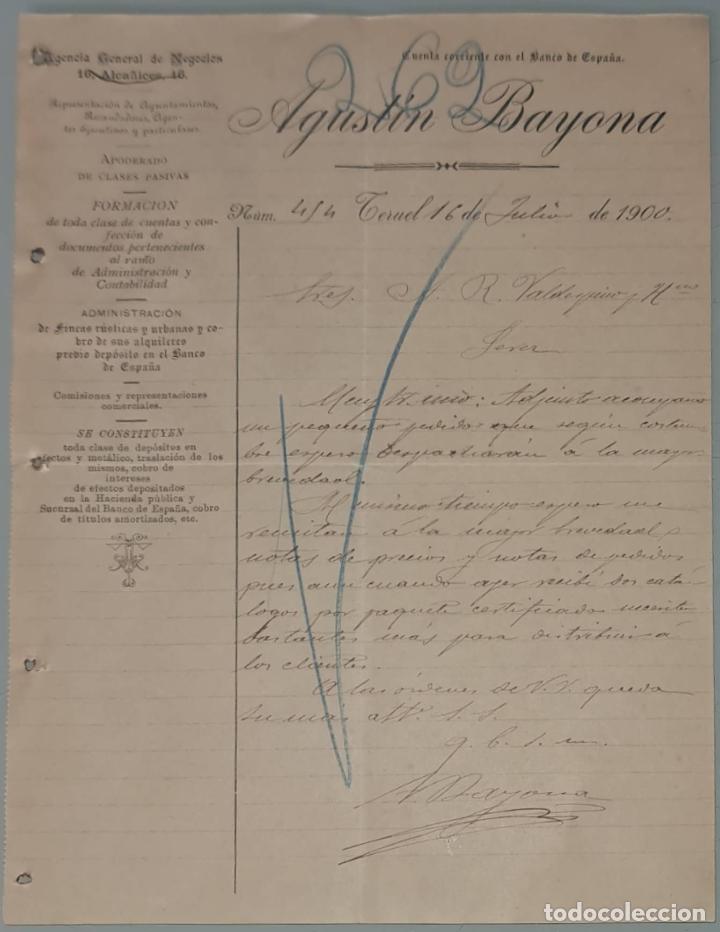 Agencia General de Negocios
16, Alcañices, 16.
Representación de Ayuntamientos,
Recaudadores, Agen-
tes Ejecutivos y particulares.
APODERADO
DE CLASES PASIVAS
FORMACION
de toda clase de cuentas y con-
fección de
documentos pertenecientes
al ramo
de Administración y
Contabilidad
ADMINISTRACIÓN
de Fincas rústicas y urbanas y co-
bro de sus alquileres
previo depósito en el Banco
de España
Comisiones y representaciones
comerciales.
SE CONSTITUYEN
toda clase de depósitos en
efectos y metálico, traslación de los
mismos, cobro de
intereses
de efectos depositados
en la Hacienda pública y
Sucursal del Banco de España, cobro
de títulos amortizados, etc.
Cuenta corriente con el Banco de España.
262
Agustín Bayona
Núm. 454 Teruel 16 de Julio de 1900.
Sres. A. R. Valdespino y Hno
Jerez
Muy Sr. mio: Adjunto acompaño
un pequeño pedido que según costum
bre espero despacharán á la mayor
brevedad.
Al mismo tiempo espero me
remitan á la mayor brevedad
notas de precios y notas de pedidos
pues aun cuando ayer recibí dos catá
logos por paquete certificado necesito
bastantes más para distribuir á
los clientes.
A las órdenes de V.V. queda
su mas atto. S. S.
q. b. s. m.
A Bayona
todocoleccion
todocoleccion.net